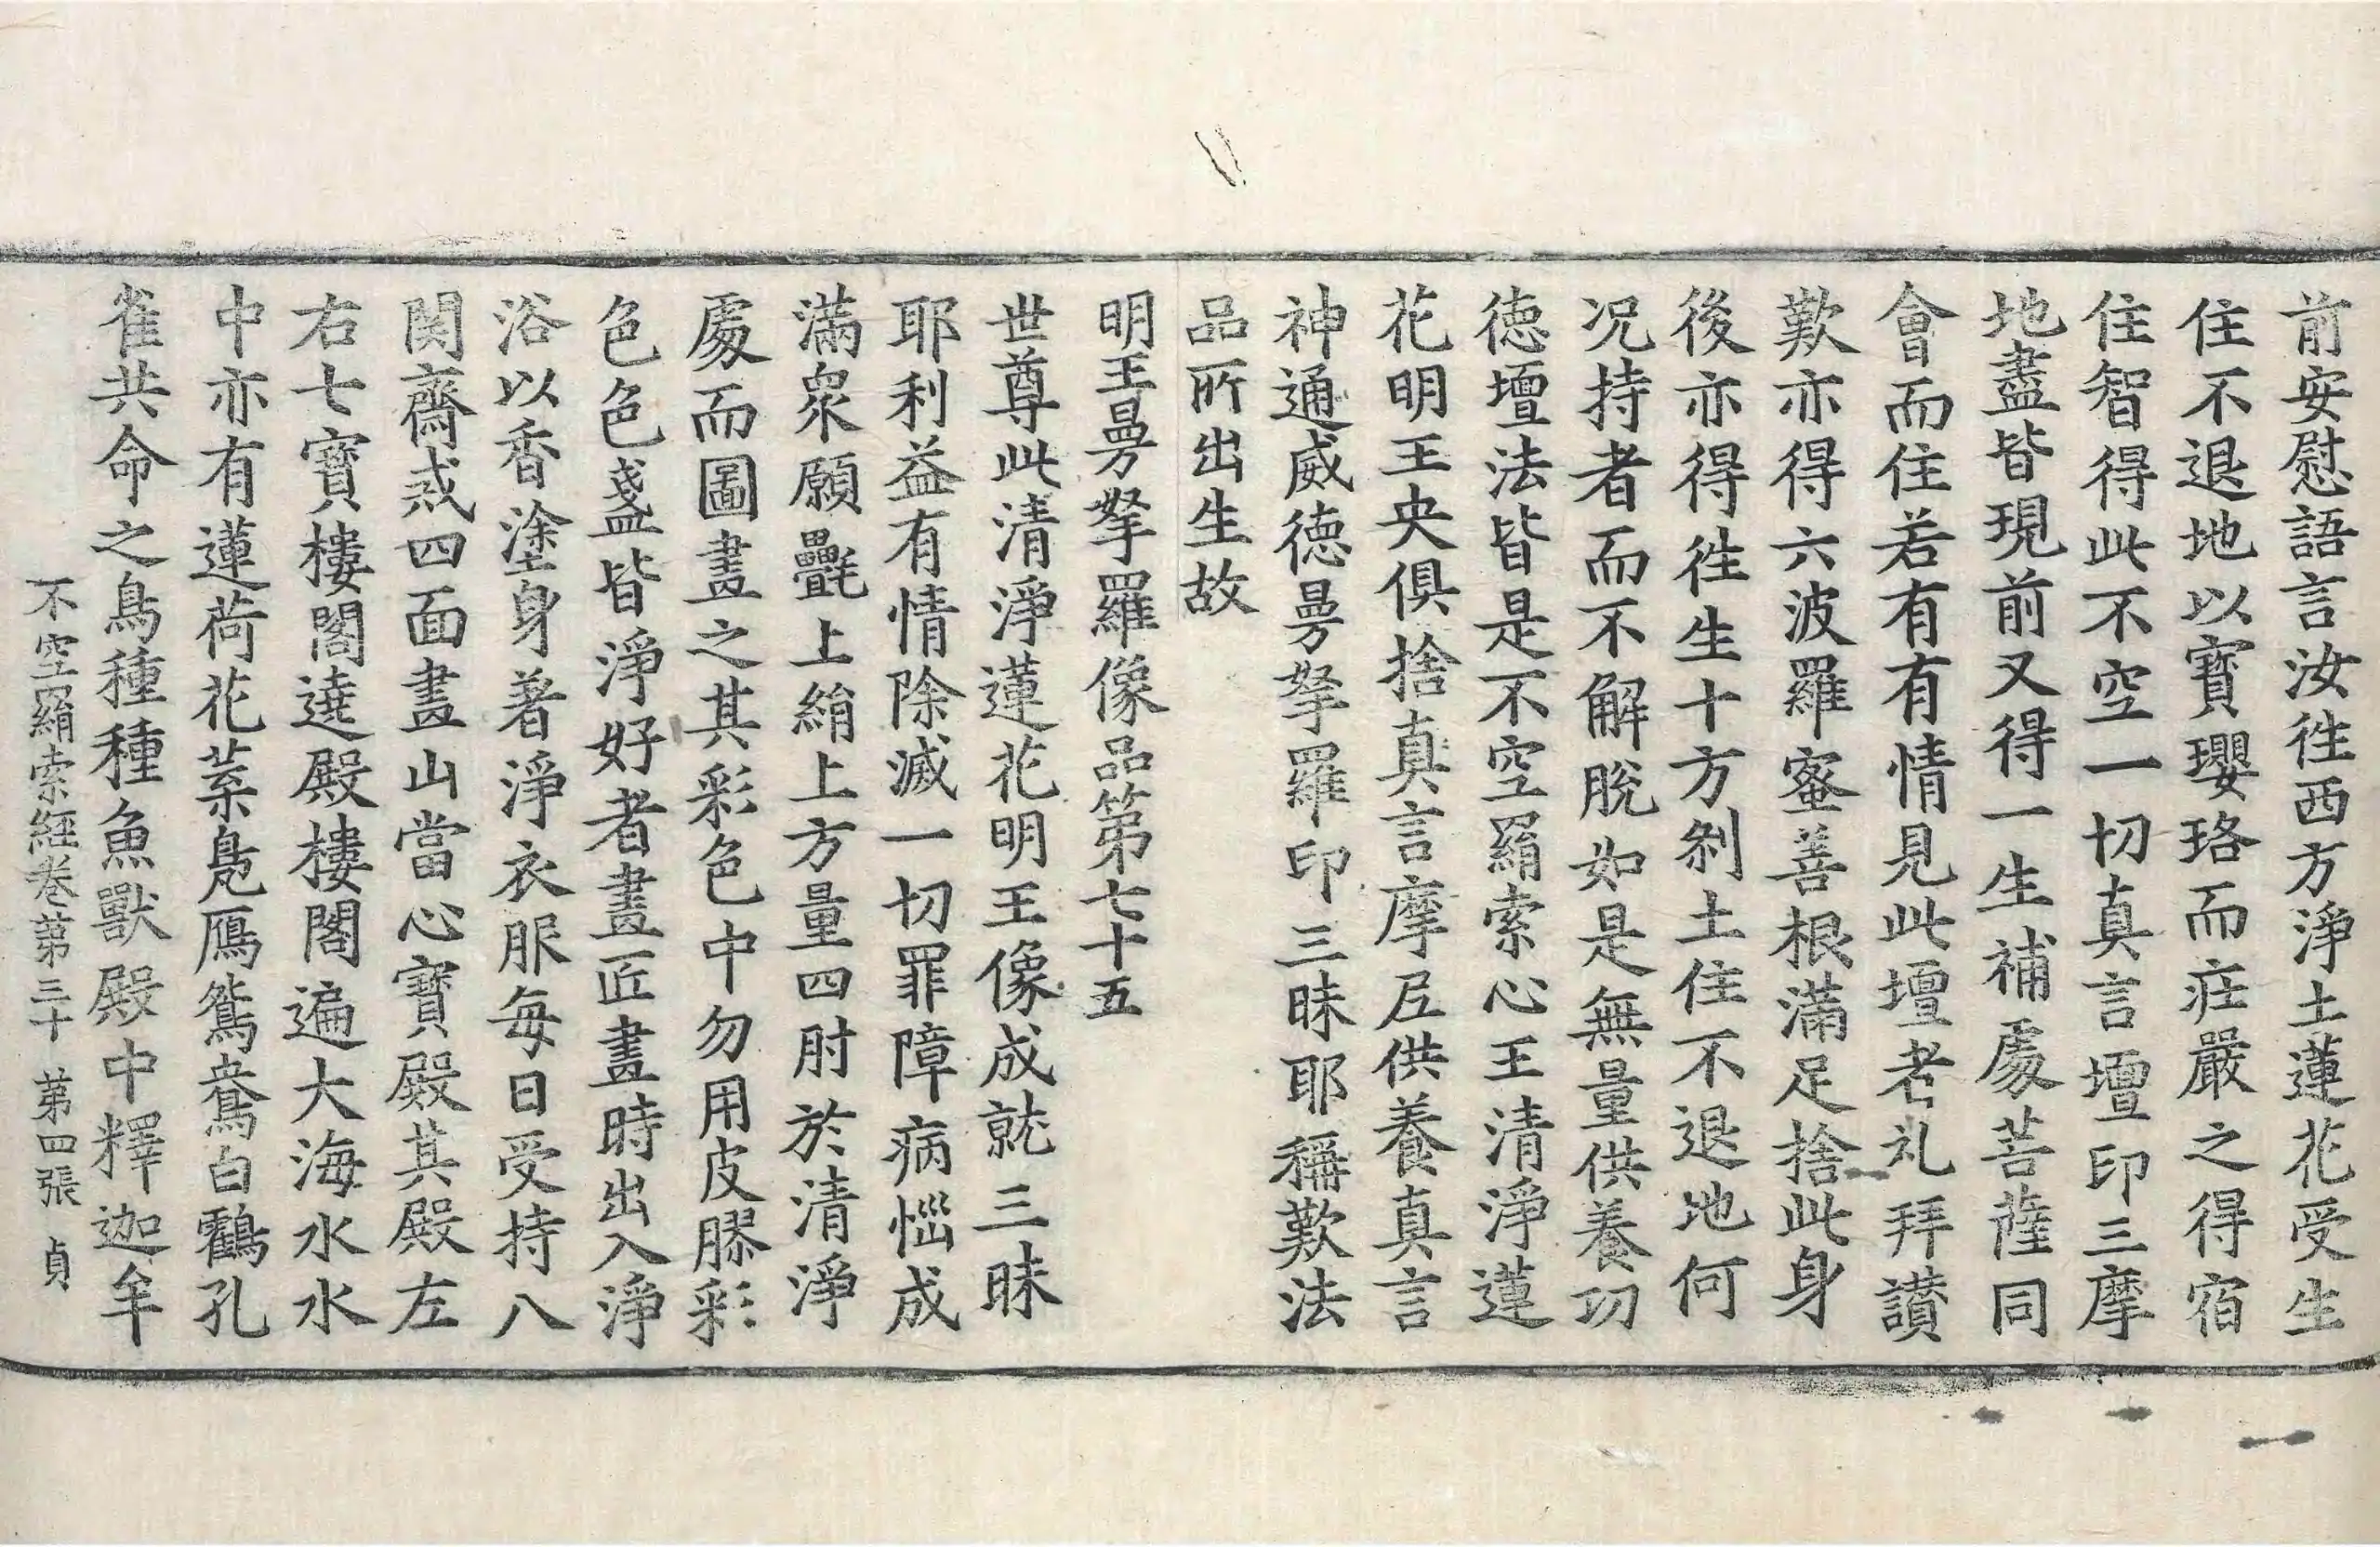 前安慰語言汝徃西方淨土蓮花受生
住不退地以寶瓔珞而庄嚴之得宿
住智得此不空一切真言壇印三摩
地盡皆現前又得一生補處菩薩同
會而住若有有情見此壇者礼拜讃
歎亦得六波羅蜜善根滿足捨此身
後亦得徃生十方剎土住不退地何
况持者而不解脫如是無量供養功
徳壇法皆是不空羂索心王清淨蓮
花明王央俱捨真言摩尼供養真言
神通威徳曼拏羅印三昧耶稱歎法
品所出生故
明王曼拏羅像品第七十五
世尊此清淨蓮花明王像成就三昧
耶利益有情除滅一切罪障病惱成
滿衆願㲲上絹上方量四肘於清淨
處而圖畫之其彩色中勿用皮膠彩
色色盞皆淨好者畫匠畫時出入淨
浴以香塗身著淨衣服每日受持八
関齋戒四面畫山當心寶殿其殿左
右七寶樓閣遶殿樓閣遍大海水水
中亦有蓮荷花葉鳧鴈鴛鴦白鸖孔
雀共命之鳥種種魚獸殿中釋迦牟
不空羂索經卷第三十 第四張 貞